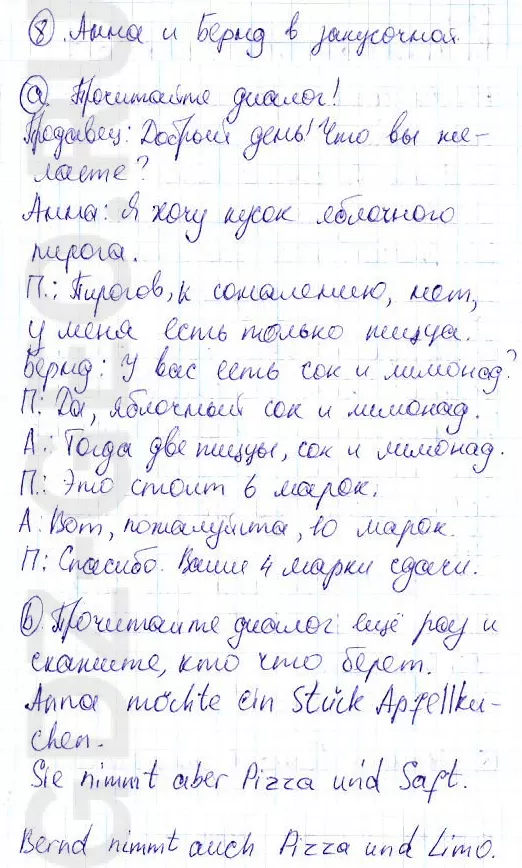 8. Анна и Бернд в закусочной.
a. Прочитайте диалог!
Продавец: Добрый день! Что вы же-
лаете?
Анна: Я хочу кусок яблочного
пирога.
П.: Пирогов, к сожалению, нет,
у меня есть только пицца.
Бернд: У вас есть сок и лимонад?
П: Да, яблочный сок и лимонад.
А: Тогда две пиццы, сок и лимонад.
П.: Это стоит 6 марок.
А: Вот, пожалуйста, 10 марок.
П: Спасибо. Ваши 4 марки сдачи.
b. Прочитайте диалог ещё раз и
скажите, кто что берет.
Anna möchte ein Stück Apfellku-
chen.
Sie nimmt aber Pizza und Saft.
Bernd nimmt auch Pizza und Limo.
GDZ-GEO.RU